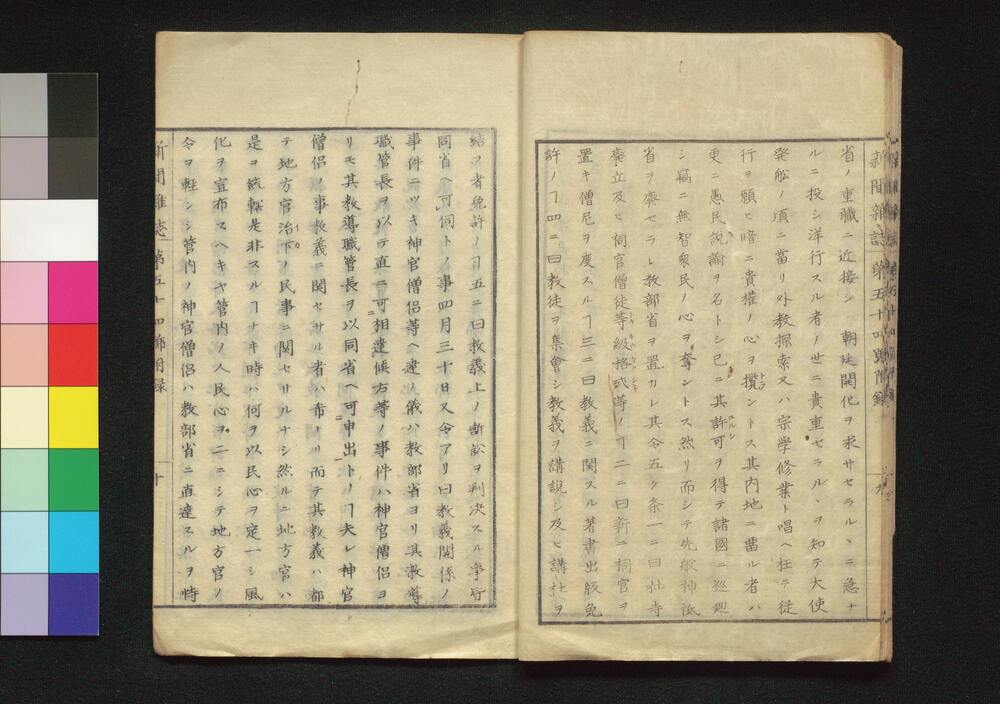 新聞雑誌 第五十四號附録 九
省ノ重職ニ近接シ 朝廷開化ヲ求サセラルヽニ急ナ
ルニ投シ洋行スル者ノ世ニ貴重セラルヽヲ知テ大使
発船ノ頃ニ當リ外教探索又ハ宗学修業ト唱ヘ狂テ従
行ヲ願ヒ暗ニ貴権ノ心ヲ攬ントス其内地ニ畱ル者ハ
トラ
更ニ愚民説諭ヲ名トシ已ニ其許可ヲ得テ諸國ニ巡廻
シ竊ニ無智衆民ノ心ヲ奪ントス然リ而シテ先般神祇
省ヲ廃セラレ教部省ヲ置カレ其令五ケ条一ニ曰社寺
廃立及ヒ祠官僧徒等級格式等ノヿ二ニ曰新ニ祠官ヲ
置キ僧尼ヲ度スルヿ三ニ曰教義ニ関スル著書出版免
許ノヿ四ニ曰教徒ヲ集會シ教義ヲ講説シ及ヒ講社ヲ
結ヲ者免許ノヿ五ニ曰教義上ノ訴訟ヲ判決スル事皆
同省ヘ可伺トノ事四月三十日又令アリ曰教義関係ノ
事件ニツキ神官僧侶等ヘ達ノ儀ハ教部省ヨリ其教導
職管長ヲ以テ直ニ可相達候方等ノ事件ハ神官僧侶ヨ
リモ其教導職管長ヲ以同省ヘ可申出トノヿ夫レ神官
僧侶ノ事教義ニ関セサル者ハ希ナリ而テ其教義ハ都
テ地方官治下ノ民事ニ関セサルナシ然ルニ地方官ハ
是ヲ統轄是非スルヿナキ時ハ何ヲ以民心ヲ定一シ風
化ヲ宣布スヘキヤ管内ノ人民心ヲ二ニシテ地方官ノ
令ヲ軽ンシ管内ノ神官僧侶ハ教部省ニ直達スルヲ恃
新聞雑誌 第五十四號附録 十